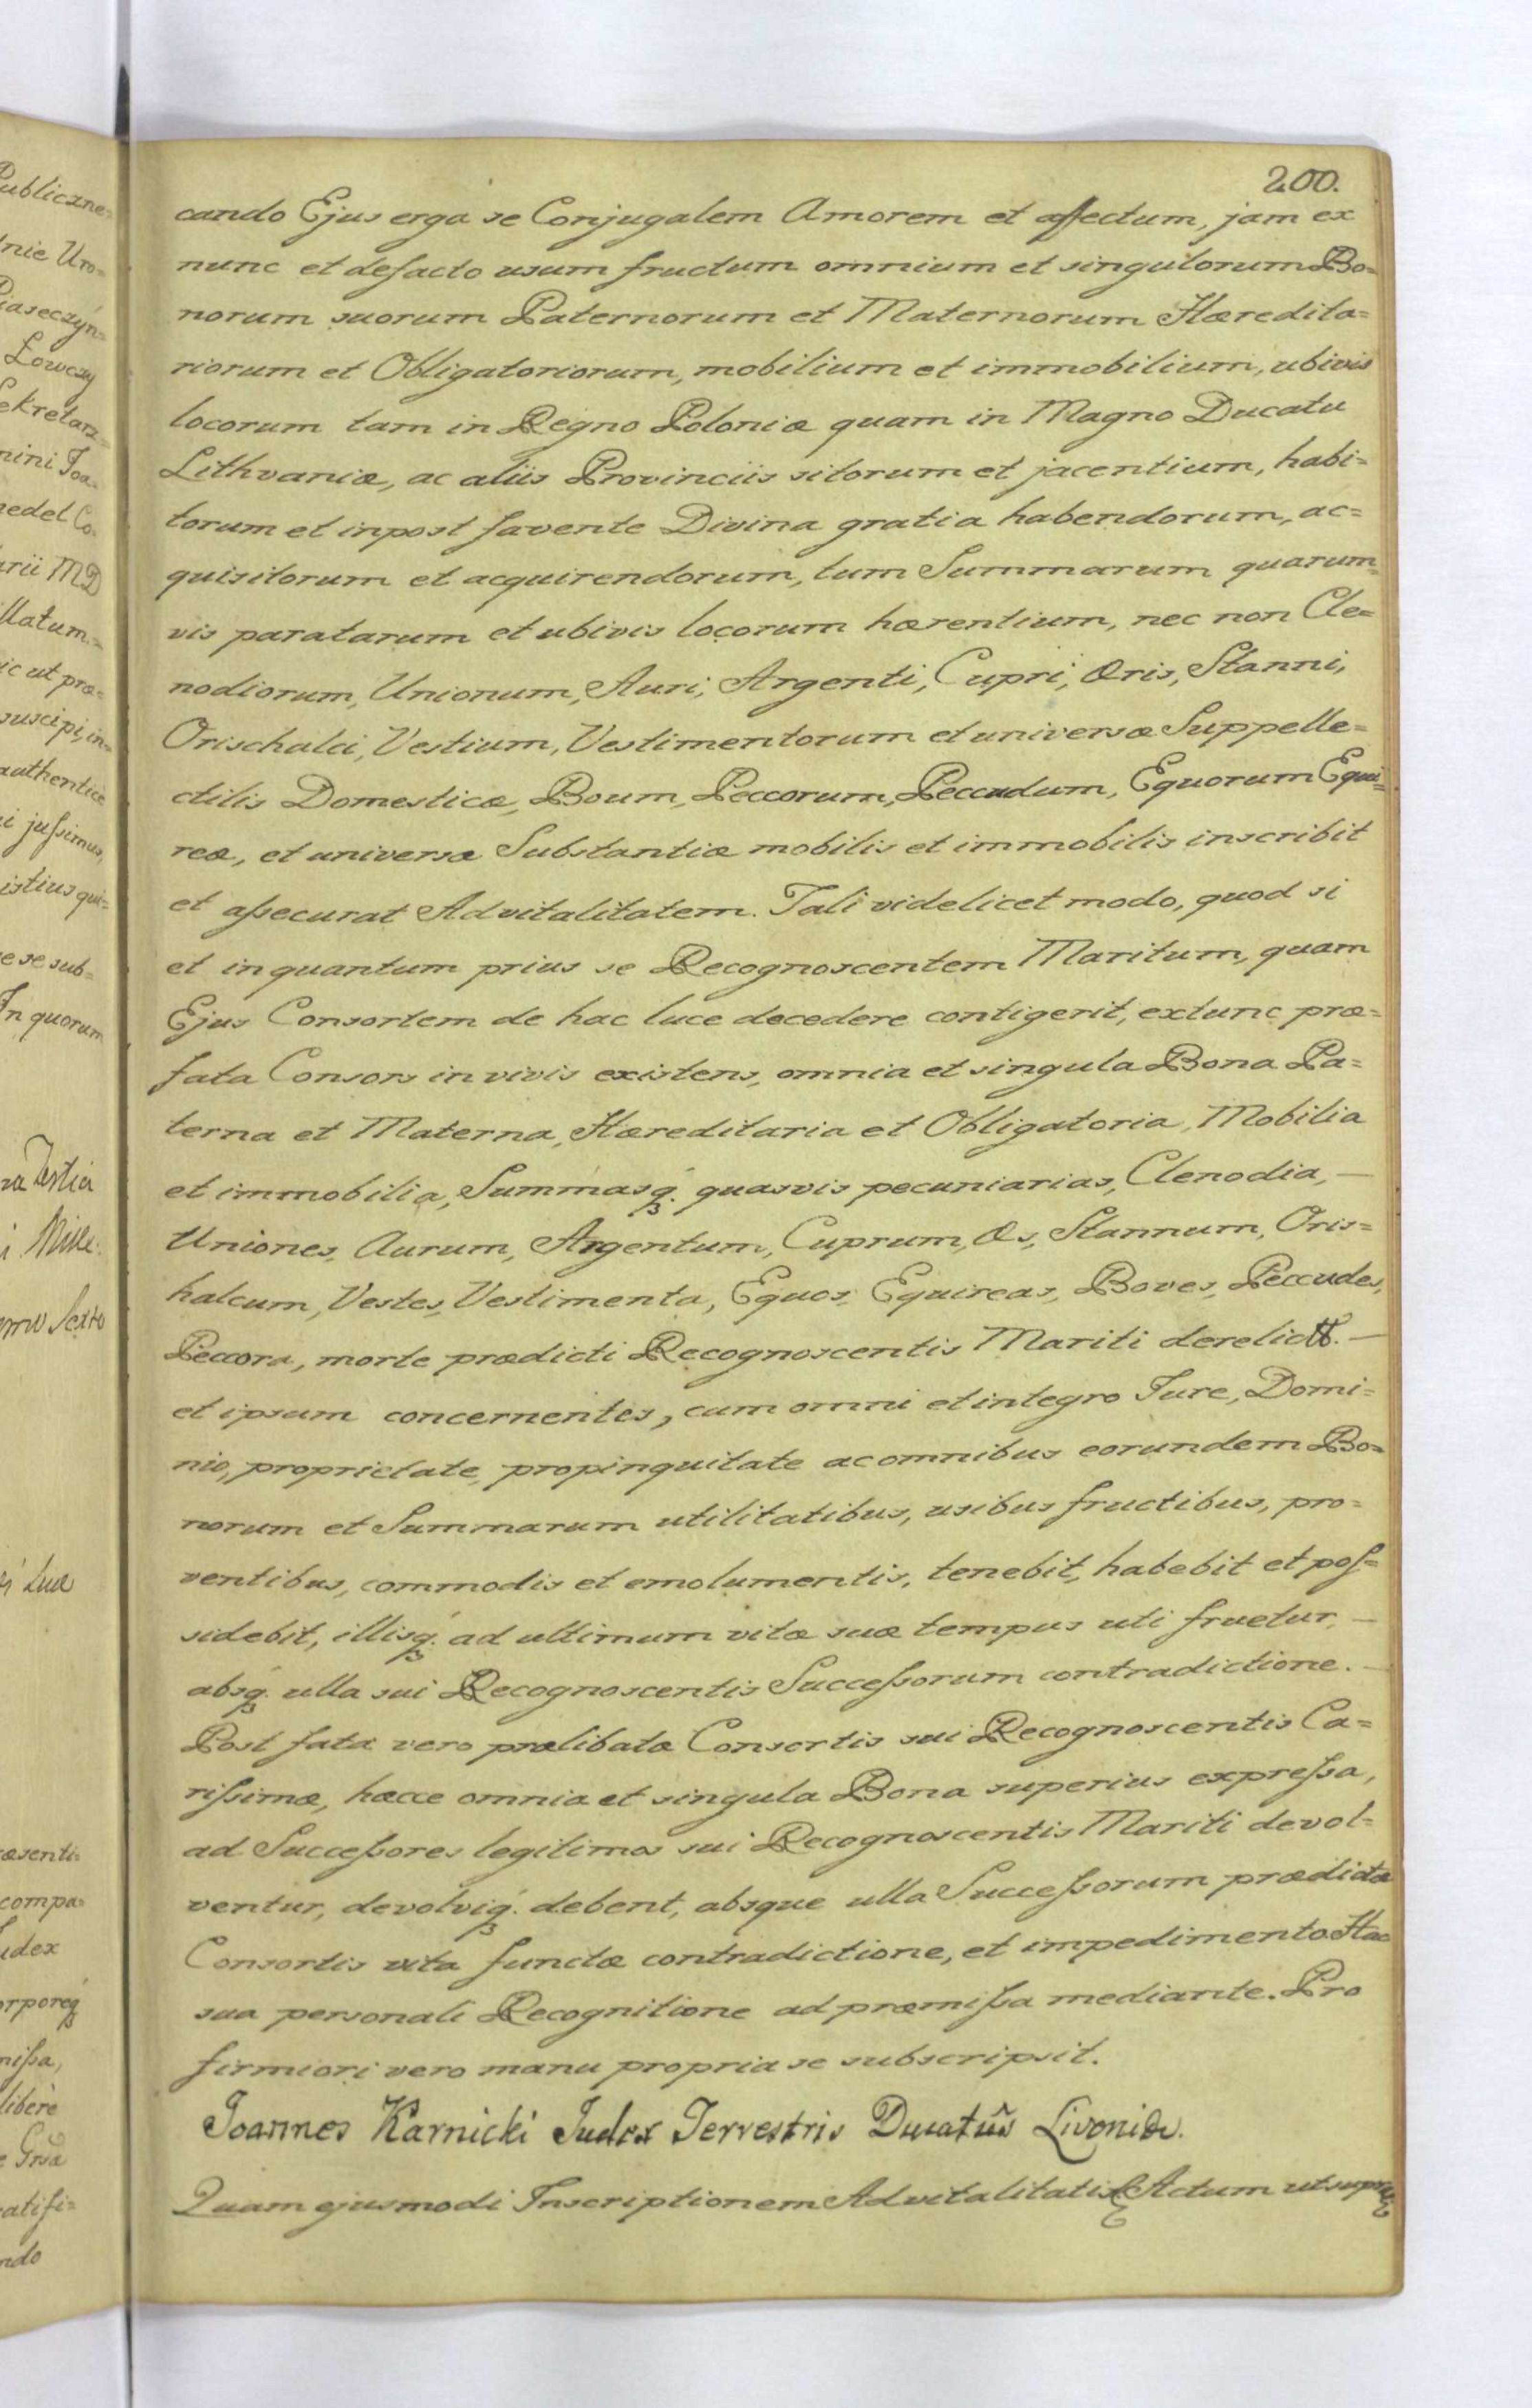 200.
cando Ejus erga se Conjugalem Amorem et affectum, jam ex
nunc et defacto usum fructum omnium et singulorum Bo=
norum suorum Paternorum et Maternorum Hæredita=
riorum et Obligatoriorum, mobilium et immobilium, ubivis
locorum tam in Regno Poloniæ quam in Magno Ducatu
Lithvaniæ, ac aliis Provinciis sitorum et jacentium, habi=
torum et inpost favente Divina gratia habendorum, ac=
quisitorum et acquirendorum, tum Summarum quarum=
vis paratarum et ubivis locorum hærentium, nec non Cle=
nodiorum, Unionum, Auri, Argenti, Cupri, Æris, Stanni,
Orischalci, Vestium, Vestimentorum et universæ Suppelle=
ctilis Domesticæ, Boum, Peccorum, Peccudum, Equorum Equi=
reæ, et universæ Substantiæ mobilis et immobilis inscribit
et assecurat Advitalitatem. Tali videlicet modo, quod si
et inquantum prius se Recognoscentem Maritum, quam
Ejus Consortem de hac luce decedere contigerit, extunc præ=
fata Consors in vivis existens, omnia et singula Bona Pa=
terna et Materna, Hæreditaria et Obligatoria, Mobilia
et immobilia, Summasq. quasvis pecuniarias, Clenodia, —
Uniones, Aurum, Argentum, Cuprum, Æs, Stannum, Oris=
halcum, Vestes, Vestimenta, Equos, Equireas, Boves, Peccudes,
Peccora, morte prædicti Recognoscentis Mariti derelictt. —
et ipsum concernentes, cum omni et integro Jure, Domi=
nio, proprietate, propinquitate ac omnibus eorundem Bo=
norum et Summarum utilitatibus, usibus fructibus, pro=
ventibus, commodis et emolumentis, tenebit, habebit et pos=
sidebit, illisq. ad ultimum vitæ suæ tempus uti fruetur, —
absq. ulla sui Recognoscentis Successorum contradictione. —
Post fata vero prælibatæ Consortis sui Recognoscentis Ca=
rissimæ, hæcce omnia et singula Bona superius expressa,
ad Successores legitimos sui Recognoscentis Mariti devol=
ventur, devolviq. debent, absque ulla Successorum prædictæ
Consortis vita functæ contradictione, et impedimento. Hac
sua personali Recognitione ad præmissa mediante. Pro
firmiori vero manu propria se subscripsit.
Joannes Karnicki Judex Terrestris Ducatûs Livoniæ.
Quam ejusmodi Inscriptionem Advitalitatis Actum ut supra
Publiczne=
Piaseczyn=
Łowczy
ekretarz
nini Joa=
redel Co=
rii MD
ic ut præ=
suscipi, in=
authentice
i jussimus,
istius qui=
e se sub=
In quorum
æsenti=
compa=
udex
orporeq
missa,
libere
atifi=
ndo